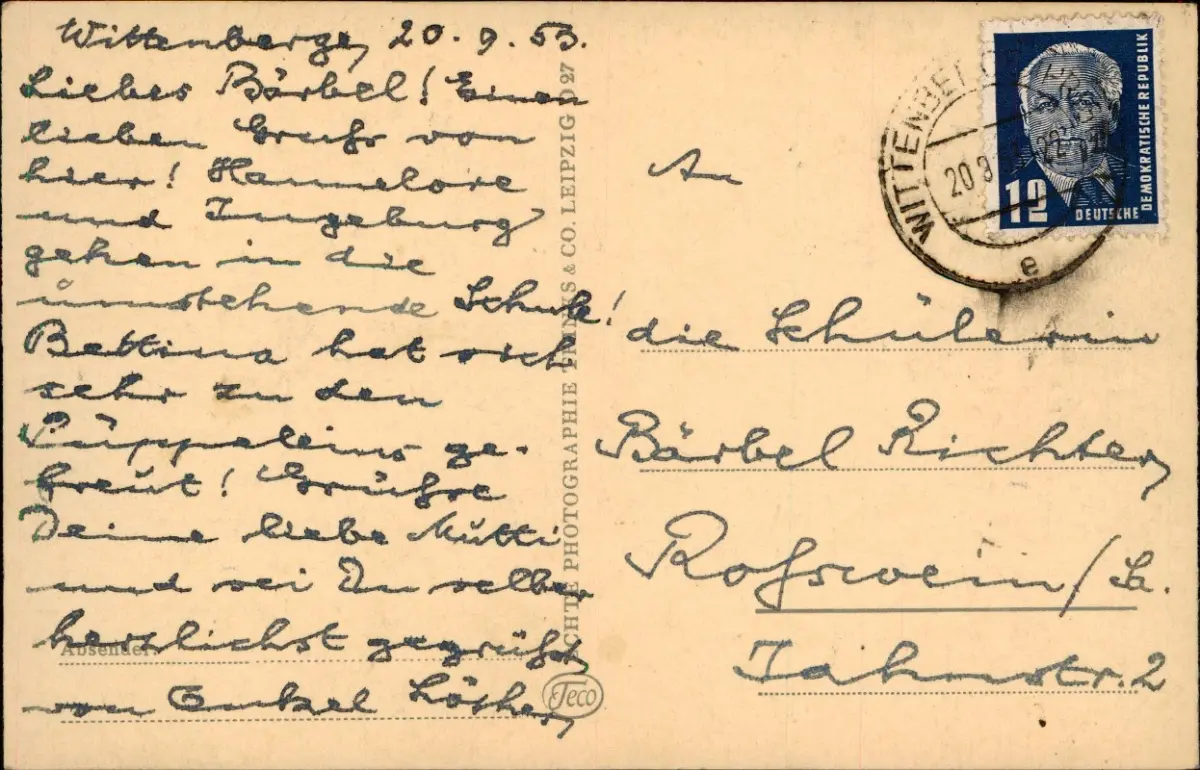 Wittenberge, 20.9.53.
Liebes Bärbel! Einen
lieben Gruß von
hier! Hannelore
und Ingeburg
gehen in die
umstehende Schule!
Bettina hat sich
sehr zu den
Püppeleins ge-
freut! Grüße
Deine liebe Mutti
und sei Du selber
herzlichst gegrüßt,
von Onkel
Absender:
ECHTE PHOTOGRAPHIE & CO. LEIPZIG 27
Teco
WITTENBERGE
20.
e
12
DEUTSCHE
DEMOKRATISCHE REPUBLIK
An
die Schülerin
Bärbel Richter,
Roßwein/Sa.
Jahnstr. 2